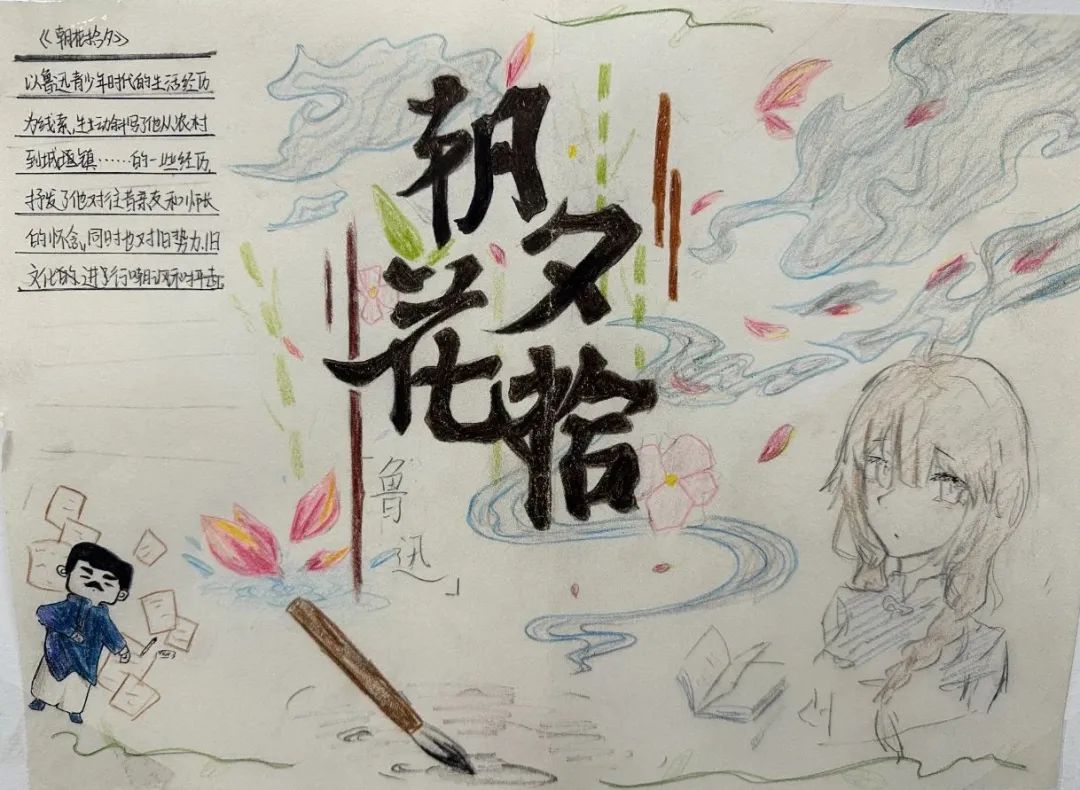 《朝花拾夕》
以鲁迅青少年时代的生活经历
为线索,生动叙写了他从农村
到城镇……的一些经历,
抒发了他对往昔亲友和师长
的怀念,同时也对旧势力,旧
文化的,进了行嘲讽和抨击,
朝
夕
花
拾
「鲁迅」